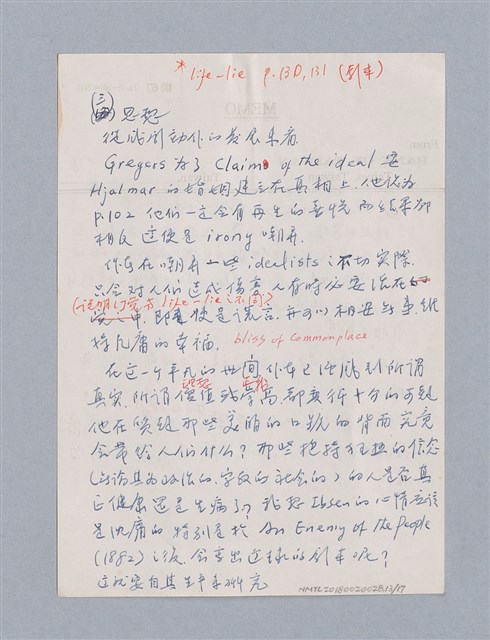 * life-lie p.130, 131 (劇本)
(三) 思想
從戲劇動作的發展來看
Gregers 為了 Claim of the ideal 要
Hjalmar 的婚姻建立在真相上. 他認為
p.102 他們一定會有再生的喜悅 而結果卻
相反 這便是 irony 嘲弄.
作者在嘲弄一些 idealists 不切實際.
只會對人們造成傷害 人有時必要活在
life-lie 不同?)
中. 即使是謊言. 并可以相安無事. 維
持凡庸的幸福. bliss of commonplace
在這一個平凡的世間 作者已
理想
真實. 所謂價值 都要作十分的
他在 那些美麗的口號的背面究竟
會帶給人們什麼? 那些抱持狂熱的信念
(無論其為政治的、宗教的 社會的) 的人是否真
正健康還是生病了? 我想 Ibsen 的心情應該
是沉痛的 特別是於 An Enemy of the People
(1882) 之後. 會寫出這樣的劇本呢?
這就要自其生平來研究
MEMO
NMTL20180020028.13/17